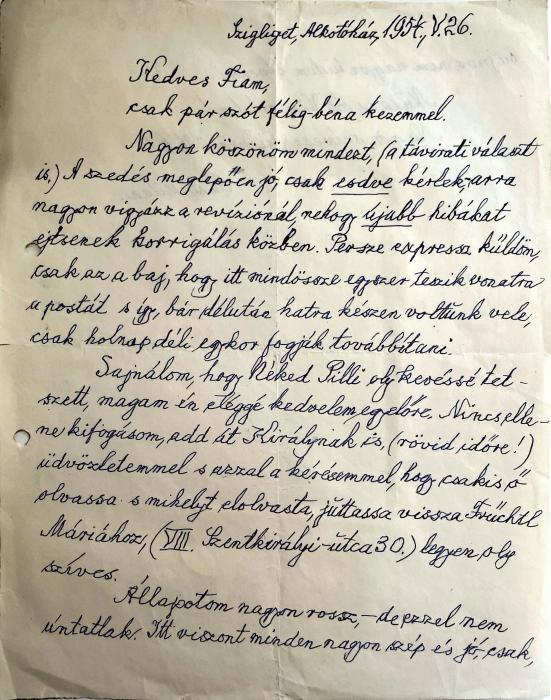 Szigliget, Alkotóház, 1954, V. 26.
Kedves Fiam,
csak pár szót félig-béna kezemmel.
Nagyon köszönöm mindezt, (a távirati választ
is.) A szedés meglepően jó, csak esdve kérlek, arra
nagyon vigyázz a revíziónál, nehogy újabb hibákat
ejtsenek korrigálás közben. Persze expressz küldöm,
csak az a baj, hogy itt mindössze egyszer teszik vonatra
a postát s így, bár délután hatra készen voltunk vele,
csak holnap déli egykor fogják továbbítani.
Sajnálom, hogy Néked Pilli oly kevéssé tet-
szett, magam én eléggé kedvelem, egyelőre. Nincs elle-
ne kifogásom, add át Királynak is, (rövid időre!)
üdvözletemmel s azzal a kéréssemmel, hogy csakis ő
olvassa s mihelyt elolvasta, juttassa vissza Früchtl
Máriához, (VIII. Szentkirályi-utca 30.) legyen oly
szíves.
Állapotom nagyon rossz, – de ezzel nem
úntatlak. Itt viszont minden nagyon szép és jó, csak,